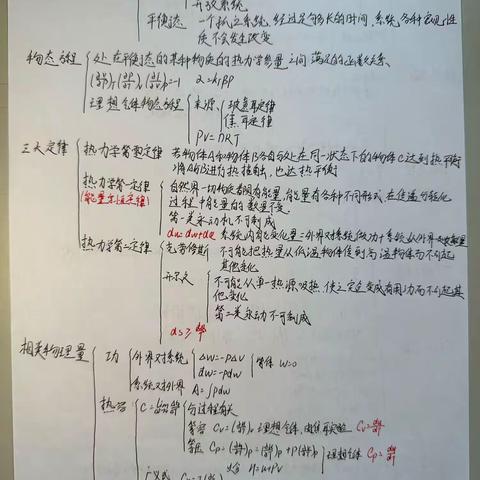 开放系统
平衡态 一个孤立系统,经过足够长的时间,系统各种宏观性
质不会发生改变
物态方程 处在平衡态的某种物质的热力学参量之间满足的函数关系、
α=κβp
理想气体物态方程 来源 玻意耳定律
焦耳定律
PV=nRT
三大定律 热力学第零定律 若物体A和物体B各自与处在同一状态下的物体C达到热平衡
将A和B进行热接触,也达热平衡
热力学第一定律 自然界一切物质都拥有能量,能量有各种不同形式 在传递与转化
(能量守恒定律) 过程中能量的数量不变
第一类永动机不可制成
系统内能变化量=外界对系统做功+系统从外界
热力学第二定律 克劳修斯 不可能把热量从低温物体传到高温物体而不引起
其他变化
开尔文 不可能从单一热源吸热使之完全变成有用功而不引起其
他变化
第二类永动机不可制成
相关物理量 功 外界对系统 ΔW=-pΔV
dW=-pdW 等体 W=0
系统对外界 A=∫pdw
热容 与过程有关
等容 理想气体,由焦耳实验
等压 理想气体
H=U+PV